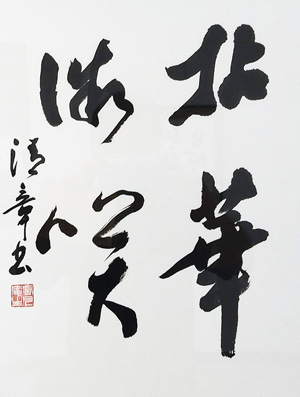 拈華
微笑
清章书